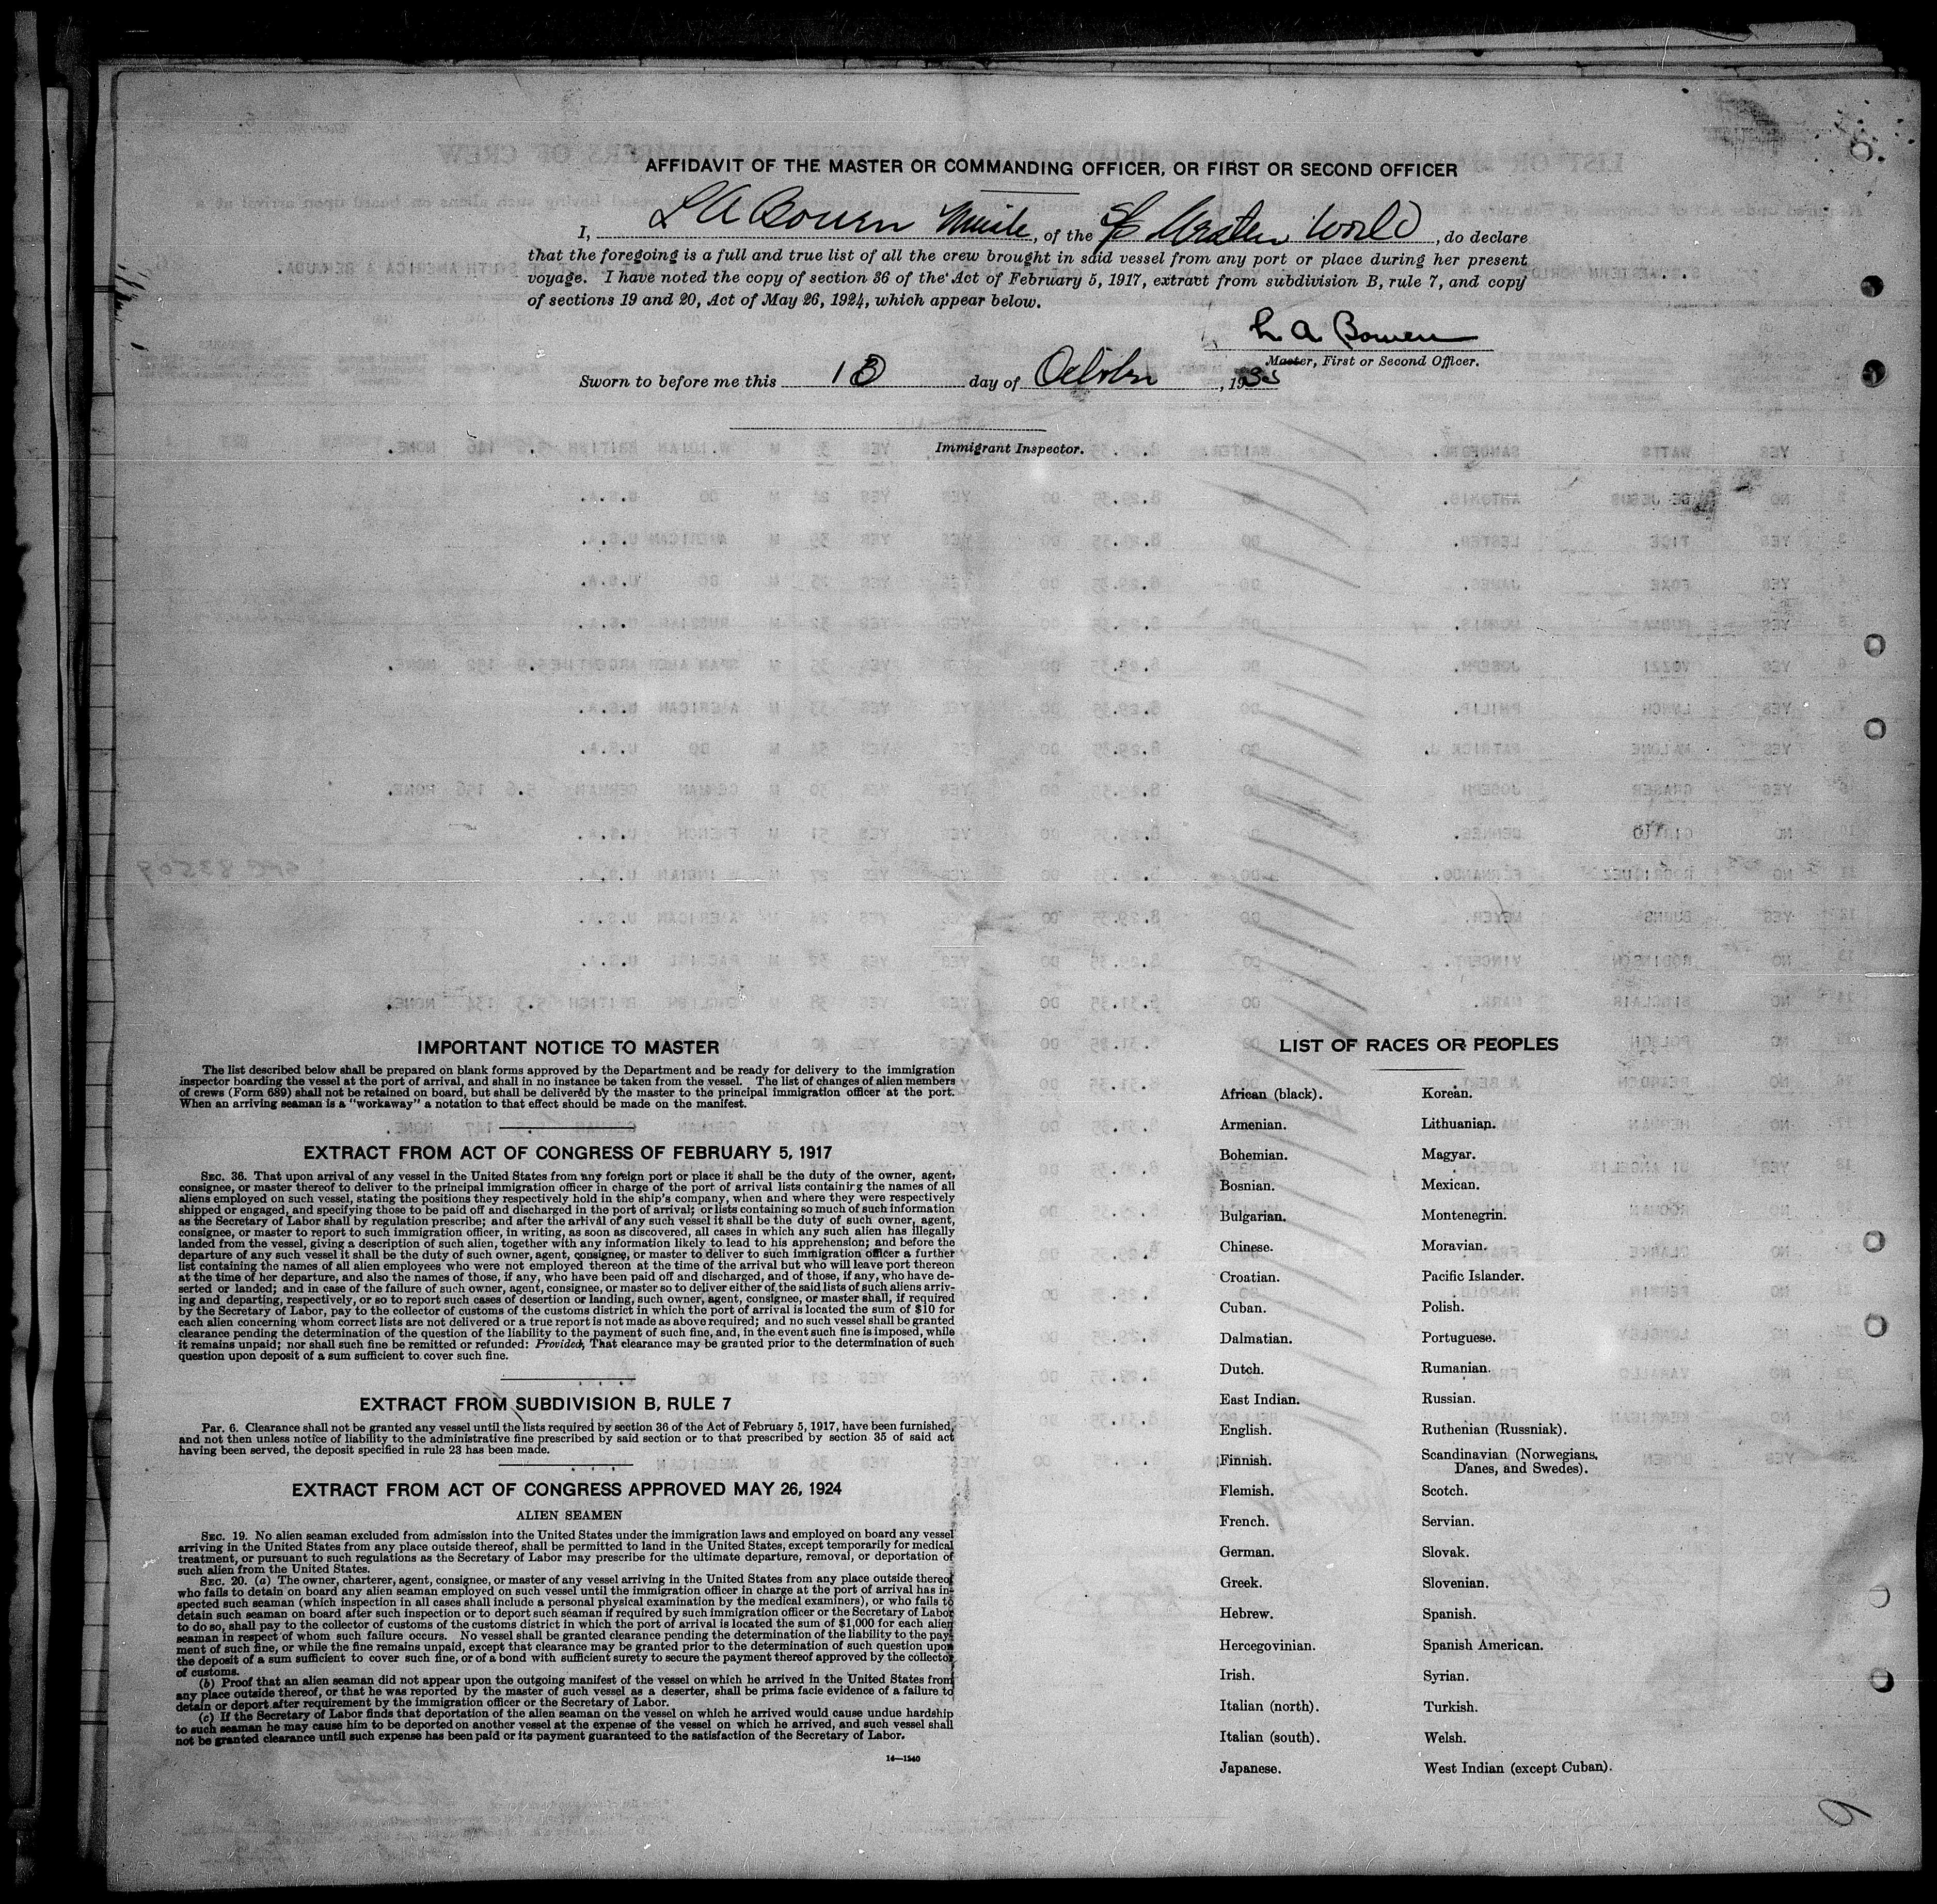 AFFIDAVIT OF THE MASTER OR COMMANDING OFFICER, OR FIRST OR SECOND OFFICER
I, L A Bowen, of the SS Western World, do declare
that the foregoing is a full and true list of all the crew brought in said vessel from any port or place during her present
voyage. I have noted the copy of section 36 of the Act of February 5, 1917, extract from subdivision B, rule 7, and copy
of sections 19 and 20, Act of May 26, 1924, which appear below.
L A Bowen
Master, First or Second Officer.
Sworn to before me this 18 day of October, 1935
Immigrant Inspector.
IMPORTANT NOTICE TO MASTER
The list described below shall be prepared on blank forms approved by the Department and be ready for delivery to the immigration
inspector boarding the vessel at the port of arrival, and shall in no instance be taken from the vessel. The list of changes of alien members
of crews (Form 689) shall not be retained on board, but shall be delivered by the master to the principal immigration officer at the port.
When an arriving seaman is a "workaway" a notation to that effect should be made on the manifest.
EXTRACT FROM ACT OF CONGRESS OF FEBRUARY 5, 1917
SEC. 36. That upon arrival of any vessel in the United States from any foreign port or place it shall be the duty of the owner, agent,
consignee, or master thereof to deliver to the principal immigration officer in charge of the port of arrival lists containing the names of all
aliens employed on such vessel, stating the positions they respectively hold in the ship's company, when and where they were respectively
shipped or engaged, and specifying those to be paid off and discharged in the port of arrival; or lists containing so much of such information
as the Secretary of Labor shall by regulation prescribe; and after the arrival of any such vessel it shall be the duty of such owner, agent,
consignee, or master to report to such immigration officer, in writing, as soon as discovered, all cases in which any such alien has illegally
landed from the vessel, giving a description of such alien, together with any information likely to lead to his apprehension; and before the
departure of any such vessel it shall be the duty of such owner, agent, consignee, or master to deliver to such immigration officer a further
list containing the names of all alien employees who were not employed thereon at the time of the arrival but who will leave port thereon
at the time of her departure, and also the names of those, if any, who have been paid off and discharged, and of those, if any, who have de-
serted or landed; and in case of the failure of such owner, agent, consignee, or master so to deliver either of the said lists of such aliens arriv-
ing and departing, respectively, or so to report such cases of desertion or landing, such owner, agent, consignee, or master shall, if required
by the Secretary of Labor, pay to the collector of customs of the customs district in which the port of arrival is located the sum of $10 for
each alien concerning whom correct lists are not delivered or a true report is not made as above required; and no such vessel shall be granted
clearance pending the determination of the question of the liability to the payment of such fine, and, in the event such fine is imposed, while
it remains unpaid; nor shall such fine be remitted or refunded: Provided, That clearance may be granted prior to the determination of such
question upon deposit of a sum sufficient to cover such fine.
EXTRACT FROM SUBDIVISION B, RULE 7
Par. 6. Clearance shall not be granted any vessel until the lists required by section 36 of the Act of February 5, 1917, have been furnished,
and not then unless notice of liability to the administrative fine prescribed by said section or to that prescribed by section 35 of said act
having been served, the deposit specified in rule 23 has been made.
EXTRACT FROM ACT OF CONGRESS APPROVED MAY 26, 1924
ALIEN SEAMEN
SEC. 19. No alien seaman excluded from admission into the United States under the immigration laws and employed on board any vessel
arriving in the United States from any place outside thereof, shall be permitted to land in the United States, except temporarily for medical
treatment, or pursuant to such regulations as the Secretary of Labor may prescribe for the ultimate departure, removal, or deportation of
such alien from the United States.
SEC. 20. (a) The owner, charterer, agent, consignee, or master of any vessel arriving in the United States from any place outside thereof
who fails to detain on board any alien seaman employed on such vessel until the immigration officer in charge at the port of arrival has in-
spected such seaman (which inspection in all cases shall include a personal physical examination by the medical examiners), or who fails to
detain such seaman on board after such inspection or to deport such seaman if required by such immigration officer or the Secretary of Labor
to do so, shall pay to the collector of customs of the customs district in which the port of arrival is located the sum of $1,000 for each alien
seaman in respect of whom such failure occurs. No vessel shall be granted clearance pending the determination of the liability to the pay-
ment of such fine, or while the fine remains unpaid, except that clearance may be granted prior to the determination of such question upon
the deposit of a sum sufficient to cover such fine, or of a bond with sufficient surety to secure the payment thereof approved by the collector
of customs.
(b) Proof that an alien seaman did not appear upon the outgoing manifest of the vessel on which he arrived in the United States from
any place outside thereof, or that he was reported by the master of such vessel as a deserter, shall be prima facie evidence of a failure to
detain or deport after requirement by the immigration officer or the Secretary of Labor.
(c) If the Secretary of Labor finds that deportation of the alien seaman on the vessel on which he arrived would cause undue hardship
to such seaman he may cause him to be deported on another vessel at the expense of the vessel on which he arrived, and such vessel shall
not be granted clearance until such expense has been paid or its payment guaranteed to the satisfaction of the Secretary of Labor.
14—1240
LIST OF RACES OR PEOPLES
African (black).
Armenian.
Bohemian.
Bosnian.
Bulgarian.
Chinese.
Croatian.
Cuban.
Dalmatian.
Dutch.
East Indian.
English.
Finnish.
Flemish.
French.
German.
Greek.
Hebrew.
Hercegovinian.
Irish.
Italian (north).
Italian (south).
Japanese.
Korean.
Lithuanian.
Magyar.
Mexican.
Montenegrin.
Moravian.
Pacific Islander.
Polish.
Portuguese.
Rumanian.
Russian.
Ruthenian (Russniak).
Scandinavian (Norwegians,
Danes, and Swedes).
Scotch.
Servian.
Slovak.
Slovenian.
Spanish.
Spanish American.
Syrian.
Turkish.
Welsh.
West Indian (except Cuban).